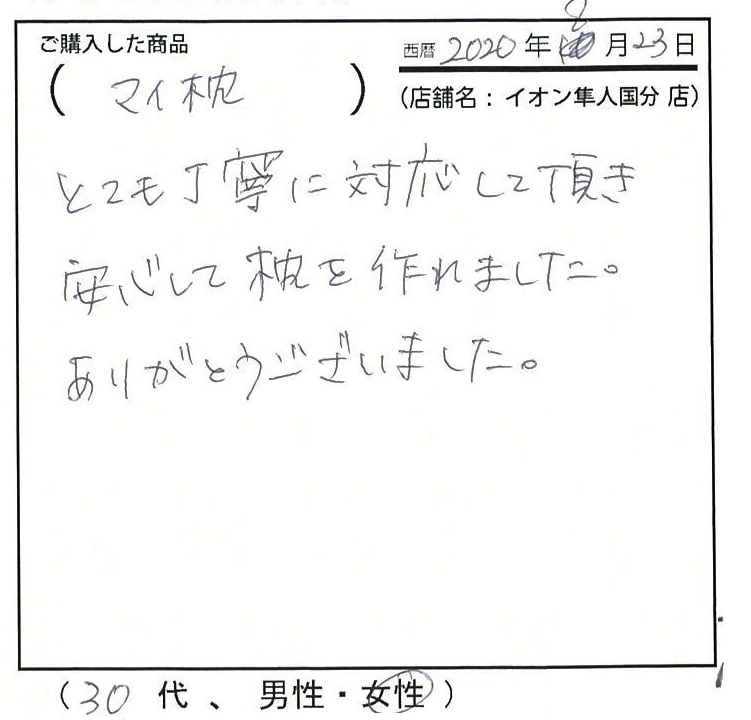 ご購入した商品
西暦 2020 年 8 月 23 日
( マイ枕 )
(店舗名：イオン隼人国分 店)
とても丁寧に対応して頂き
安心して枕を作れました。
ありがとうございました。
(30 代 、 男性・女性)